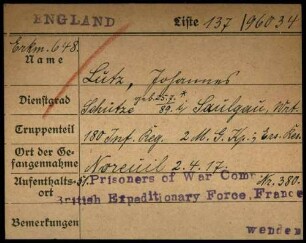 ENGLAND Liste 137/96034
Erkm. 648.
Name Lutz, Johannes
Dienstgrad Schütze geb. 25.7. 89. i/ Saulgau, Wrt.
Truppenteil 180 Inf. Reg. 2 M. G. Kp.; Ers. Res.
Ort der Ge-
fangennahme Noreuil 2.4.17.
Aufenthalts-
ort 37. Prisoners of War Comp Nr. 380.
British Expeditionary Force, France
Bemerkungen wenden